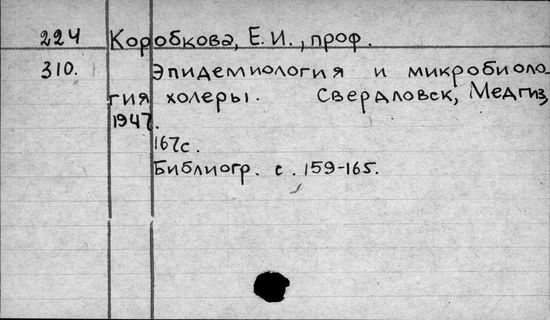 224 Коробкова, Е.И., проф.
310. Эпидемиология и микробиоло-
гия холеры. Свердловск, Медгиз,
1947.
167с.
Библиогр. с. 159-165.